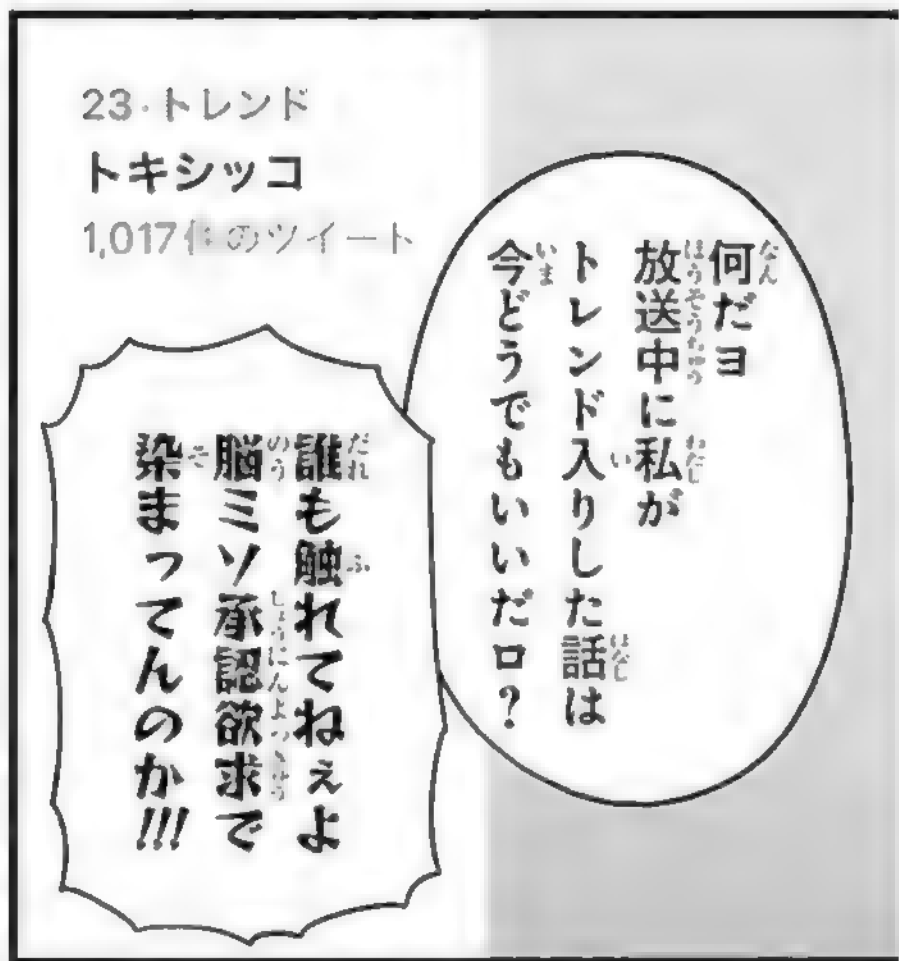 23·トレンド
トキシッコ
1,017件のツイート
何だヨ
放送中に私が
トレンド入りした話は
今どうでもいいだロ?
誰も触れてねぇよ
脳ミソ承認欲求で
染まってんのか!!!